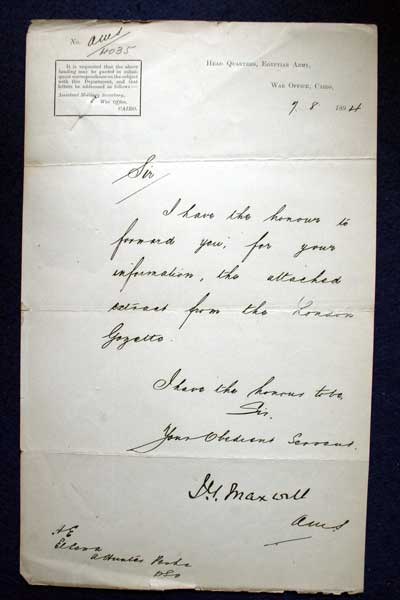 No. AMS
4035
It is requested that the above
heading may be quoted in subse-
quent correspondence on the subject
with this Department, and that
letters be addressed as follows:—
Assistant Military Secretary,
War Office,
CAIRO.
HEAD QUARTERS, EGYPTIAN ARMY,
WAR OFFICE, CAIRO,
7. 8 1894
Sir
I have the honour to
forward you, for your
information, the attached
extract from the London
Gazette.
I have the honour to be
Sir.
Your Obedient Servant.
J.G. Maxwell
AMS
H.E.
Hunter Pasha
DSO